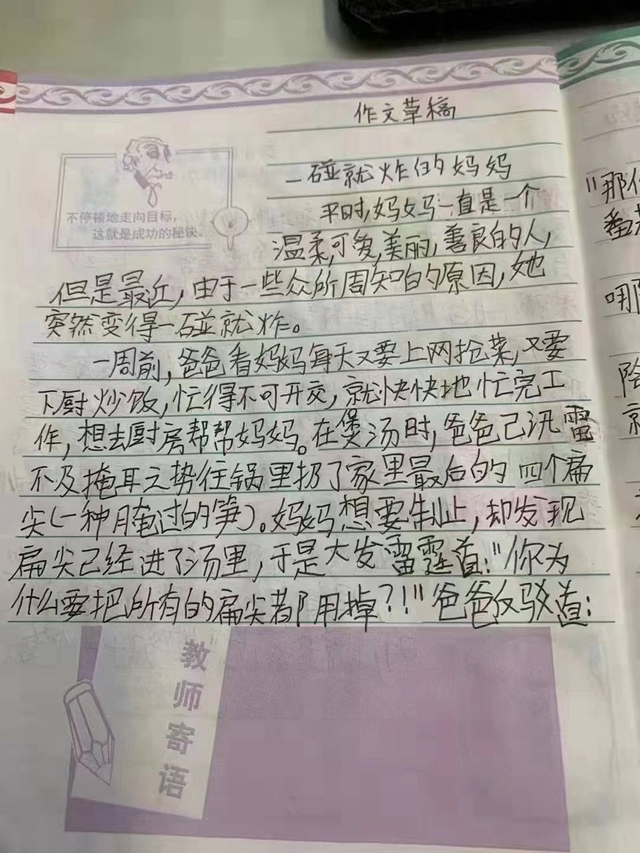 作文草稿
不停顿地走向目标，
这就是成功的秘诀。
一碰就炸的妈妈
平时，妈妈一直是一个
温柔，可爱，美丽，善良的人，
但是最近，由于一些众所周知的原因，她
突然变得一碰就炸。
一周前，爸爸看妈妈每天又要上网抢菜，又要
下厨炒饭，忙得不可开交，就快快地忙完工
作，想去厨房帮帮妈妈。在煲汤时，爸爸已迅雷
不及掩耳之势往锅里扔了家里最后的四个扁
尖（一种腌过的笋）。妈妈想要制止，却发现
扁尖已经进了汤里，于是大发雷霆道：“你为
什么要把所有的扁尖都用掉？！”爸爸反驳道：
教师寄语
“那
番
哪